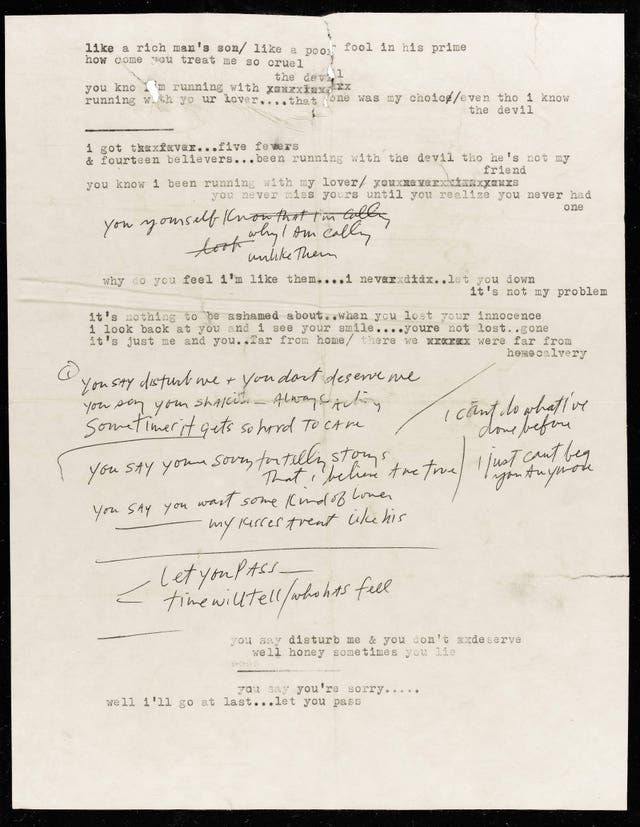 like a rich man's son/ like a poor fool in his prime
how come you treat me so cruel
the devil
you kno i'm running with
running with yo ur lover....that one was my choice/even tho i know
the devil
i got five fevers
& fourteen believers...been running with the devil tho he's not my
friend
you know i been running with my lover/
you never miss yours until you realize you never had
one
you yourself know that I'm calling
look why I am calling
unlike them
why do you feel i'm like them....i never didx..let you down
it's not my problem
it's nothing to be ashamed about..when you lost your innocence
i look back at you and i see your smile....youre not lost..gone
it's just me and you..far from home/ there we xxxxxx were far from
homecalvery
① you say disturb me + you dont deserve me
you say your shakin – always acting
Sometimes it gets so hard to care
you say youre sorry for telling storys
That i believe are true
you say you want some kind of lover
my kisses arent like his
i cant do what i've
done before
i just cant beg
you anymore
Let you PASS —
time will tell/who has fell
you say disturb me & you don't xxdeserve
well honey sometimes you lie
you say you're sorry.....
well i'll go at last...let you pass